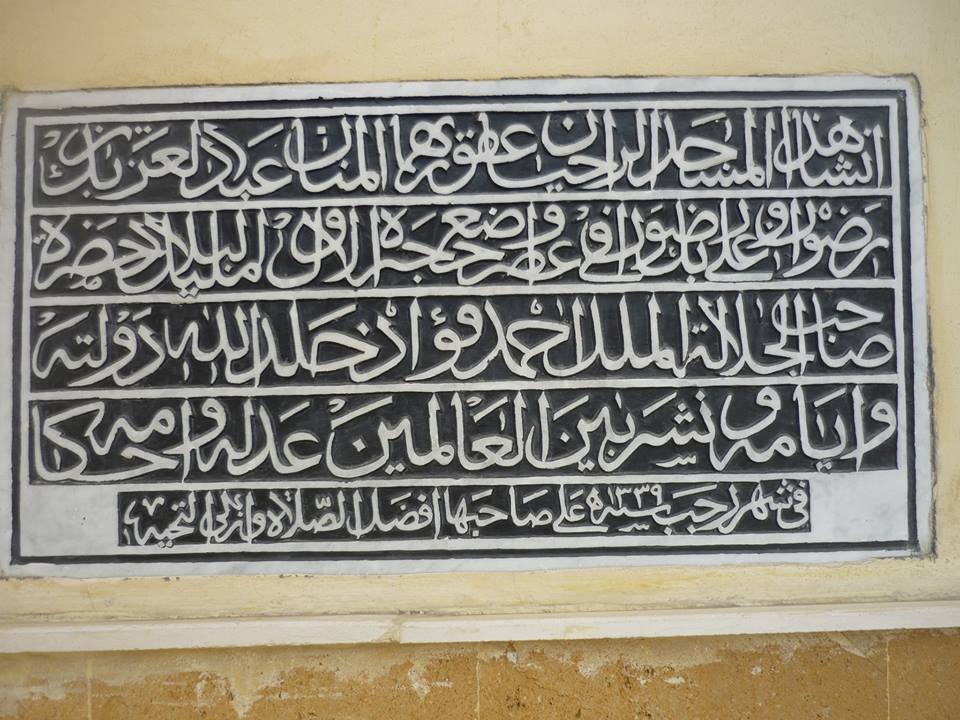 انشا هذا المسجد الراجيان عفو ربهما المنان عبد العزيز بك
رضوان وعلى بك رضوان فى وضع حجره الاول حضرة
صاحب الجلالة الملك احمد فؤاد خلد الله دولته
وايامه ونشر بين العالمين عدله واحكامه
فى شهر رجب سنة ١٣٣٩ه على صاحبها افضل الصلاة وازكى التحيه